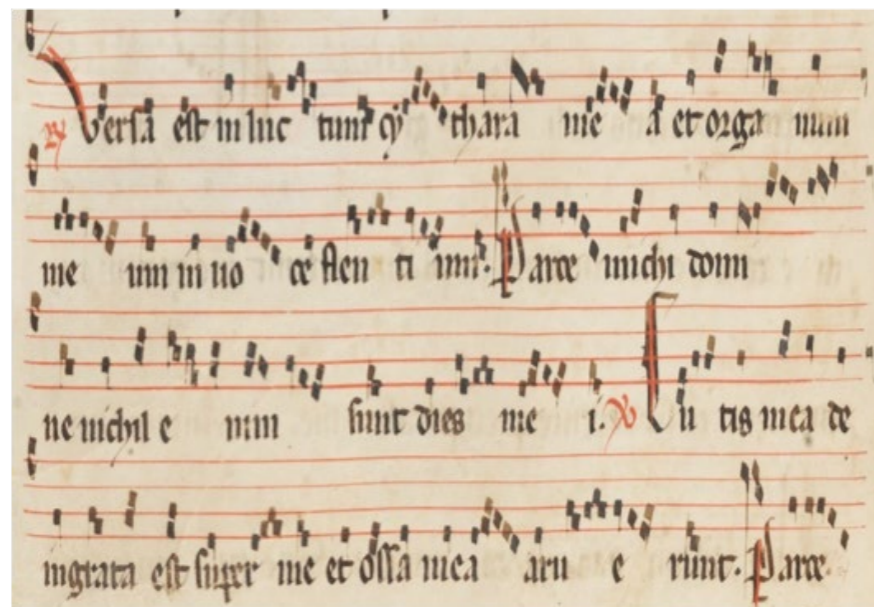 ℟ Versa est in luc tum cy thara me a et orga num
me um in uo ce flen ti um. Parce michi domi
ne nichyl e nim sunt dies me i. ℣ Cu tis mea de
nigrata est super me et ossa mea aru e runt. Parce.